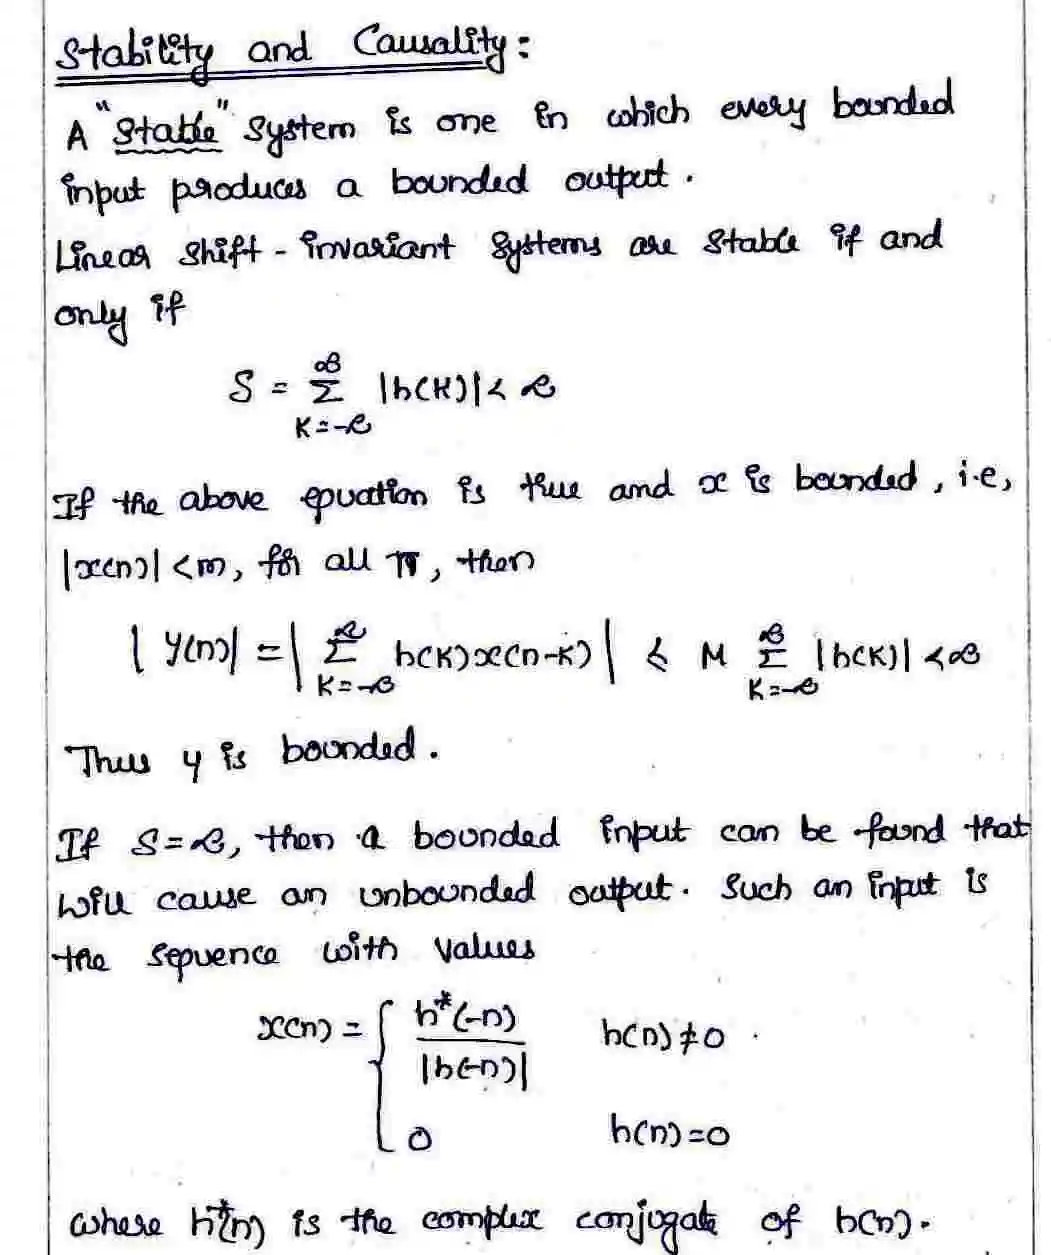 Stability and Causality:
A "Stable" System is one in which every bounded
input produces a bounded output.
Linear Shift-invariant Systems are Stable if and
only if
S = ∞ Σ K=-∞ |h(K)| < ∞
If the above equation is true and x is bounded, i.e,
|x(n)| < m, for all n, then
|y(n)| = | ∞ Σ K=-∞ h(K)x(n-K) | ≤ M ∞ Σ K=-∞ |h(K)| < ∞
Thus y is bounded.
If S=∞, then a bounded input can be found that
will cause an unbounded output. Such an input is
the sequence with values
x(n) = { h*(-n) / |h(-n)| h(n)≠0
0 h(n)=0
where h*(n) is the complex conjugate of h(n).